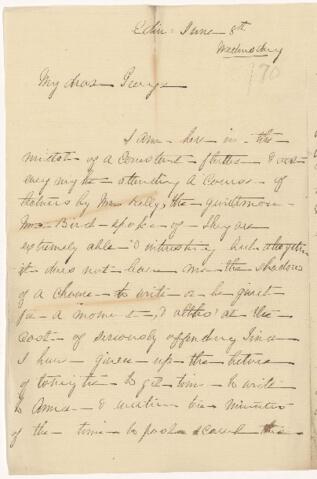 Edin: June 8th
Wednesday
70
My dear George
I am here in the
midst of a constant flutter & out
every night attending a course of
lectures by Mr Kelly, the gentleman
Mrs Bird spoke of - They are
extremely able & interesting but altogether
it does not leave me the shadow
of a chance to write or be quiet
for a moment, & altho' at the
cost of seriously offending
I have given up the lecture
of tonight to get time to write
to Anna & within ten minutes
of the time to post